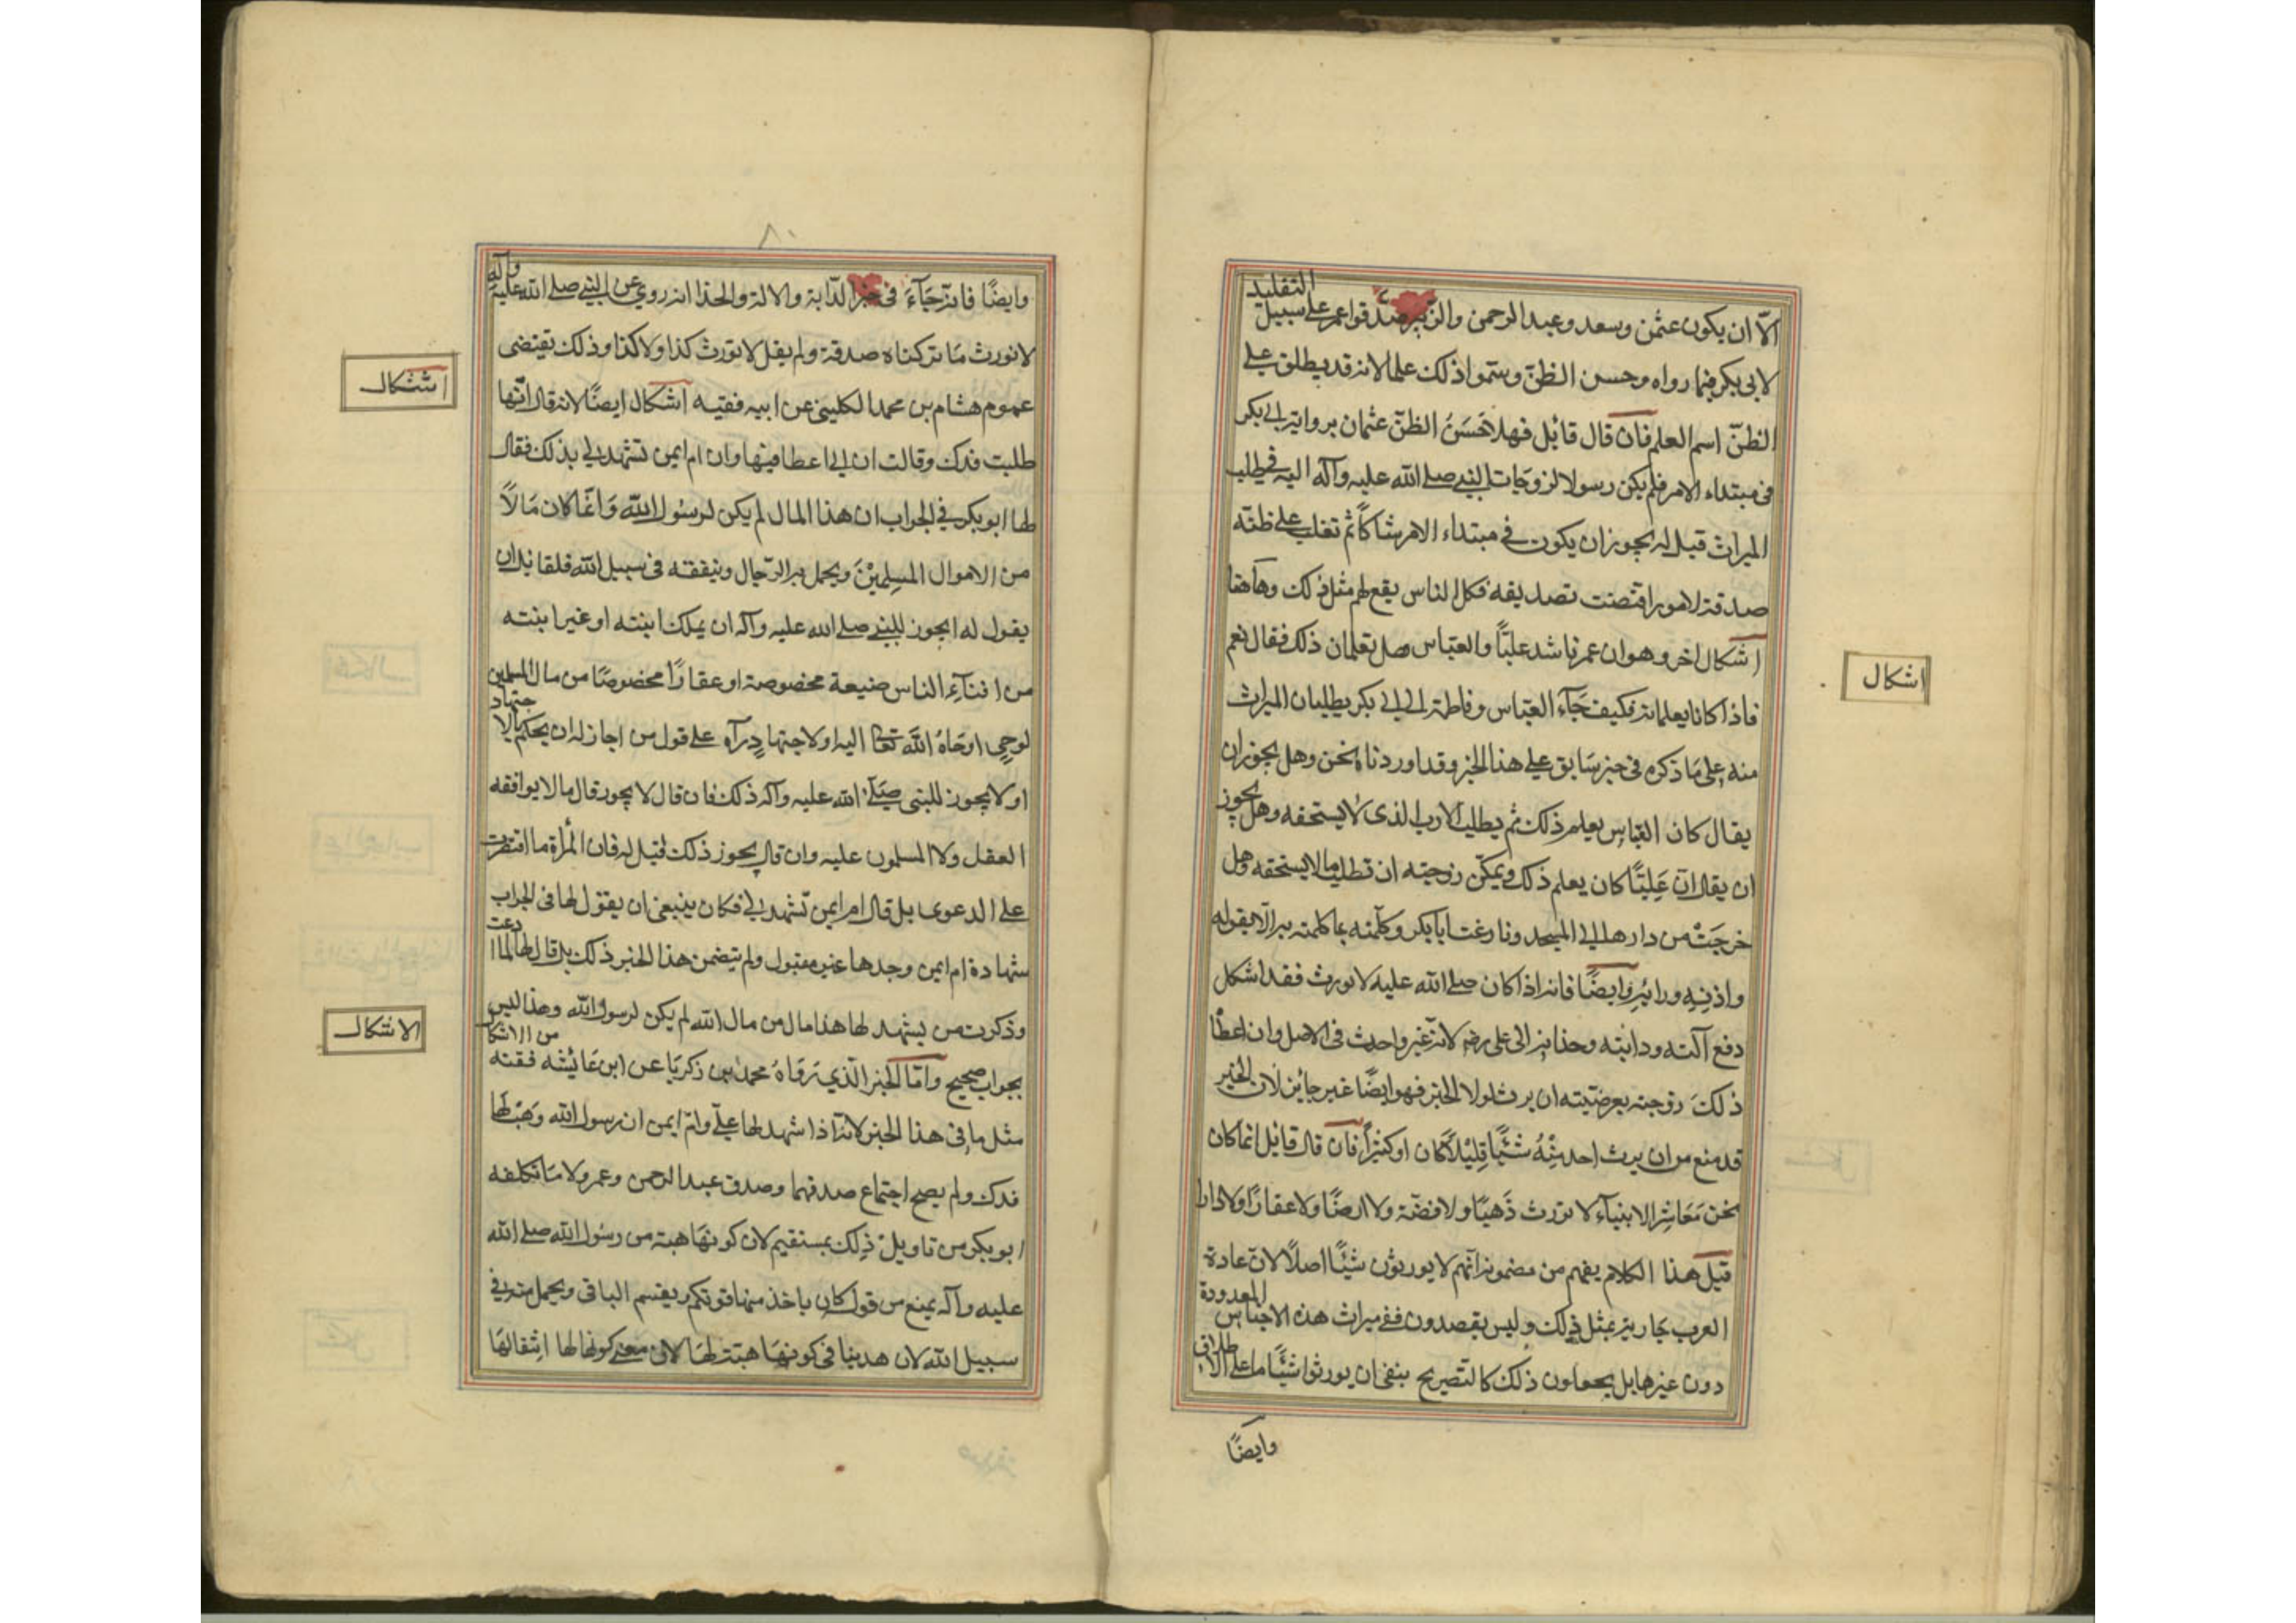 الّا ان يكون عثمن وسعد وعبد الرحمن والزّبير صدّقوا عمر على سبيل التقليد
لابى بكر فيما رواه وحسن الظنّ وسَمّوا ذلك علما لانه قد يطلق على
الظنّ اسم العلم فان قال قائل فهلا حَسَنُ الظنّ عثمان بروايته ابى بكر
فى مبتداء الامر فلم يكن رسولا لزوجات النبى صلے الله عليه وآله اليه فى طلب
الميراث قيل له يجوز ان يكون فى مبتداء الامر شاكاً ثم تغلب على ظنّه
صدقة لامور اقتصنت تصديقه فكل الناس يقع لهم مثل ذلك وهاهنا
اشكال اخر وهو ان عمر ناشد عليّاً والعبّاس هل تعلمان ذلك فقال نعم
فاذا كانا يعلمانه فكيف جَآء العبّاس وفاطمة الى ابى بكر يطلبان الميراث
منه على مَا ذكره فى خبر سَابق على هذا الخبر وقد اوردناه نحن وهل يجوز ان
يقال كان العبّاس يعلم ذلك ثم يطلب الارث الذى لا يستحقه وهل يجوز
ان يقال انّ عَليّاً كان يعلم ذلك ويمكّن زوجته ان تطلب ما لا يستحقه وهل
خرجَتْ من دارها الى المسجد ونازعت ابا بكر وكلّمته بما كلمته به الّا بقوله
واذنه ورايُه وَايضًا فانه اذا كان صلے الله عليه لا يورث فقد اشكل
دفع آلته ودابّته وحذائه الى على رضه لانّه غير واحدث فى الاصل وان اعطا
ذلكَ زوجته بعرضيّته ان يرث لولا الخبر فهو ايضًا غير جائز لان الخبر
قد منع من ان يرث احد منْهُ شَيْئًا قليْلاً كان او كثيْراً فان قال قائل انما كان
نحن مَعَاشِر الانبيآء لا نورث ذَهبًا ولا فضّة ولا ارضًا ولا عقارًا ولا دارا
قيْل هذا الكلام يفهم من مضمونه انّهم لا يورثوْن شيْئًا اصلاً لانّ عادة
العرب جَارية بمثل ذلك وليس يقصدون نفى ميراث هذه الاجناس المعدودة
دون غيرها بل يجعلون ذلك كالتصريح بنفى ان يورثوا شيْئًا ما على الاطلاق
وايضًا
اشكال
٨٠
وايضًا فانه جَآءَ فى خبر الدّابة والالة والحذا انه روى عن النبى صلے الله عليه وآله
لا نورث مَا تركناه صدقة ولم يقل لا نورث كذا ولا كذا وذلك يقتضى
عموم هشام بن محمد الكلينى عن ابيه ففيه اشكال ايضًا لانه قال انّها
طلبت فدك وقالت ان ابى اعطانيها وان ام ايمن تشهد لى بذلك فقال
لها ابو بكر فى الجراب ان هذا المال لم يكن لرسُول اللّه وَانّما كان مَالاً
من الاموال المسلمِيْنَ ويحمل به الرّجال وينفقه فى سبيل الله فلقائل ان
يقول له ايجوز للنبى صلے الله عليه وآله ان يملك ابنته او غير ابنته
من افنآءِ الناس ضيعة مخصوصة او عقارًا مخصوصًا من مال المسلمين
لوحى اوحَاهُ اللّه تعا اليه او لاجتهاد رآه على قول من اجاز له ان يحكم بالاجتهاد
او لا يجوز للنبى صَلّے الله عليه وآله ذلك فان قال لا يجوز قال ما لا يوافقه
العقل ولا المسلمون عليه وان قال يجوز ذلك قيل له فان المرأة ما اقتصرت
على الدعوى بل قال ام ايمن تشهد لى فكان ينبغى ان يقول لها فى الجراب
شهادة ام ايمن وحدها غير مقبول ولم يتضمن هذا الخبر ذلك بل قال لها لما ادعت
وذكرت من يشهد لها هذا مال من مال الله لم يكن لرسول الله وهذا ليس
بجواب صحيح وامّا الخبر الّذى رَوَاهُ محمد بن زكريّا عن ابن عَائيشه ففيه من الاشكال
مثل ما فى هذا الخبر لانّه اذا شهد لها علىّ وامّ ايمن ان رسول الله وهَبْ لها
فدك ولم يصح اجتماع صدقهما وصدق عبد الرحمن وعمر ولا مَا تكلفه
ابو بكر من تاويْل ذلك بمستقيم لان كونهَا هبة من رسُول الله صلے الله
عليه وآله يمنع من قوله كان ياخذ منها قوتكم ويقسم الباقى ويحمل منه فى
سبيل الله لان هذا ينافى كونها هبة لها لان معنى كونها لها انتقالها
اشكال
الاشكال